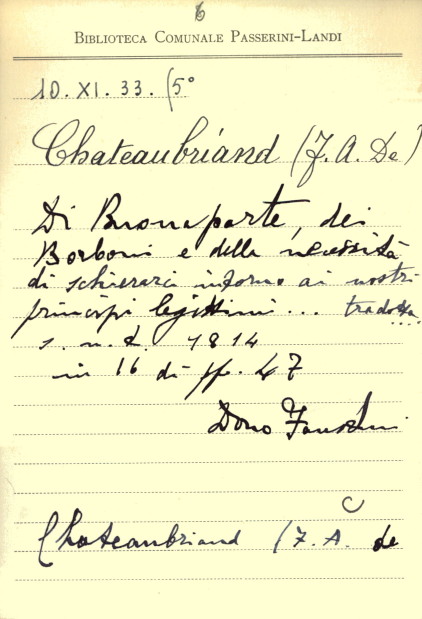 6
BIBLIOTECA COMUNALE PASSERINI-LANDI
10. XI. 33. (5°
Chateaubriand (F. A. De)
Di Buonaparte, dei
Borboni e della necessità
di schierarci intorno ai nostri
principi legittimi... tradotta
s. n. t. 1814
in 16 di pp. 47
Dono
C
Chateaubriand (F. A. de